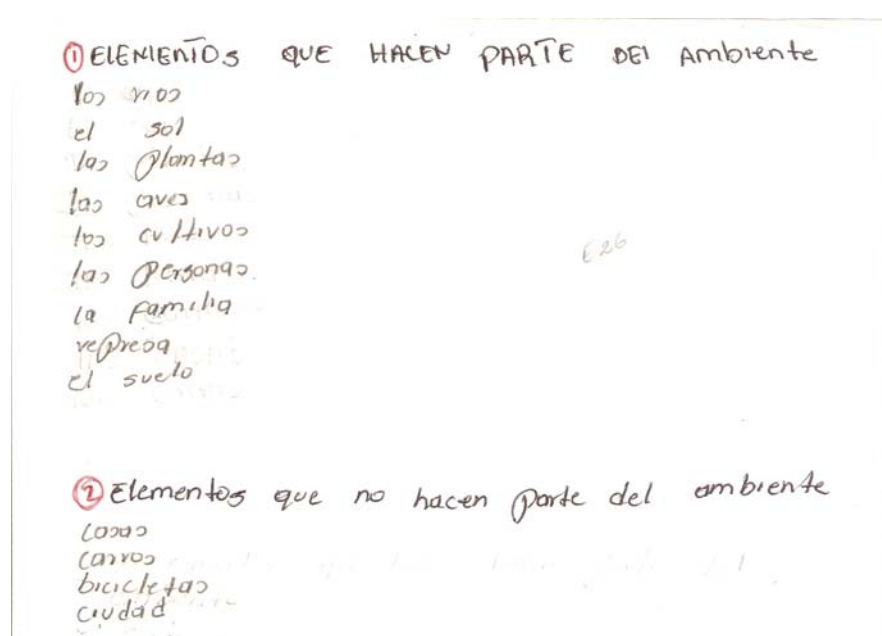 ① ELEMENTOS QUE HACEN PARTE DEl Ambiente
los rios
el sol
las plantas
las aves
los cultivos
E26
las personas.
la familia
represa
el suelo
② Elementos que no hacen parte del ambiente
casas
carros
bicicletas
ciudad